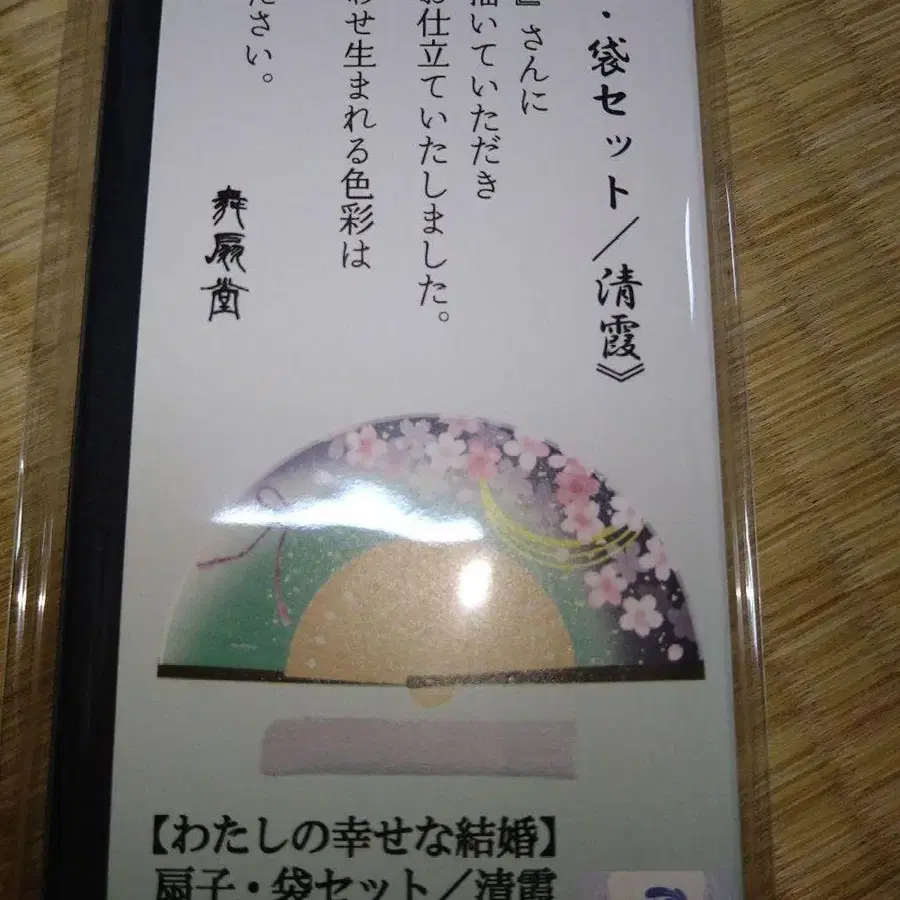 ・袋セット／清霞》
』さんに
描いていただき
お仕立ていたしました。
わせ生まれる色彩は
ださい。
舞扇堂
【わたしの幸せな結婚】
扇子・袋セット／清霞